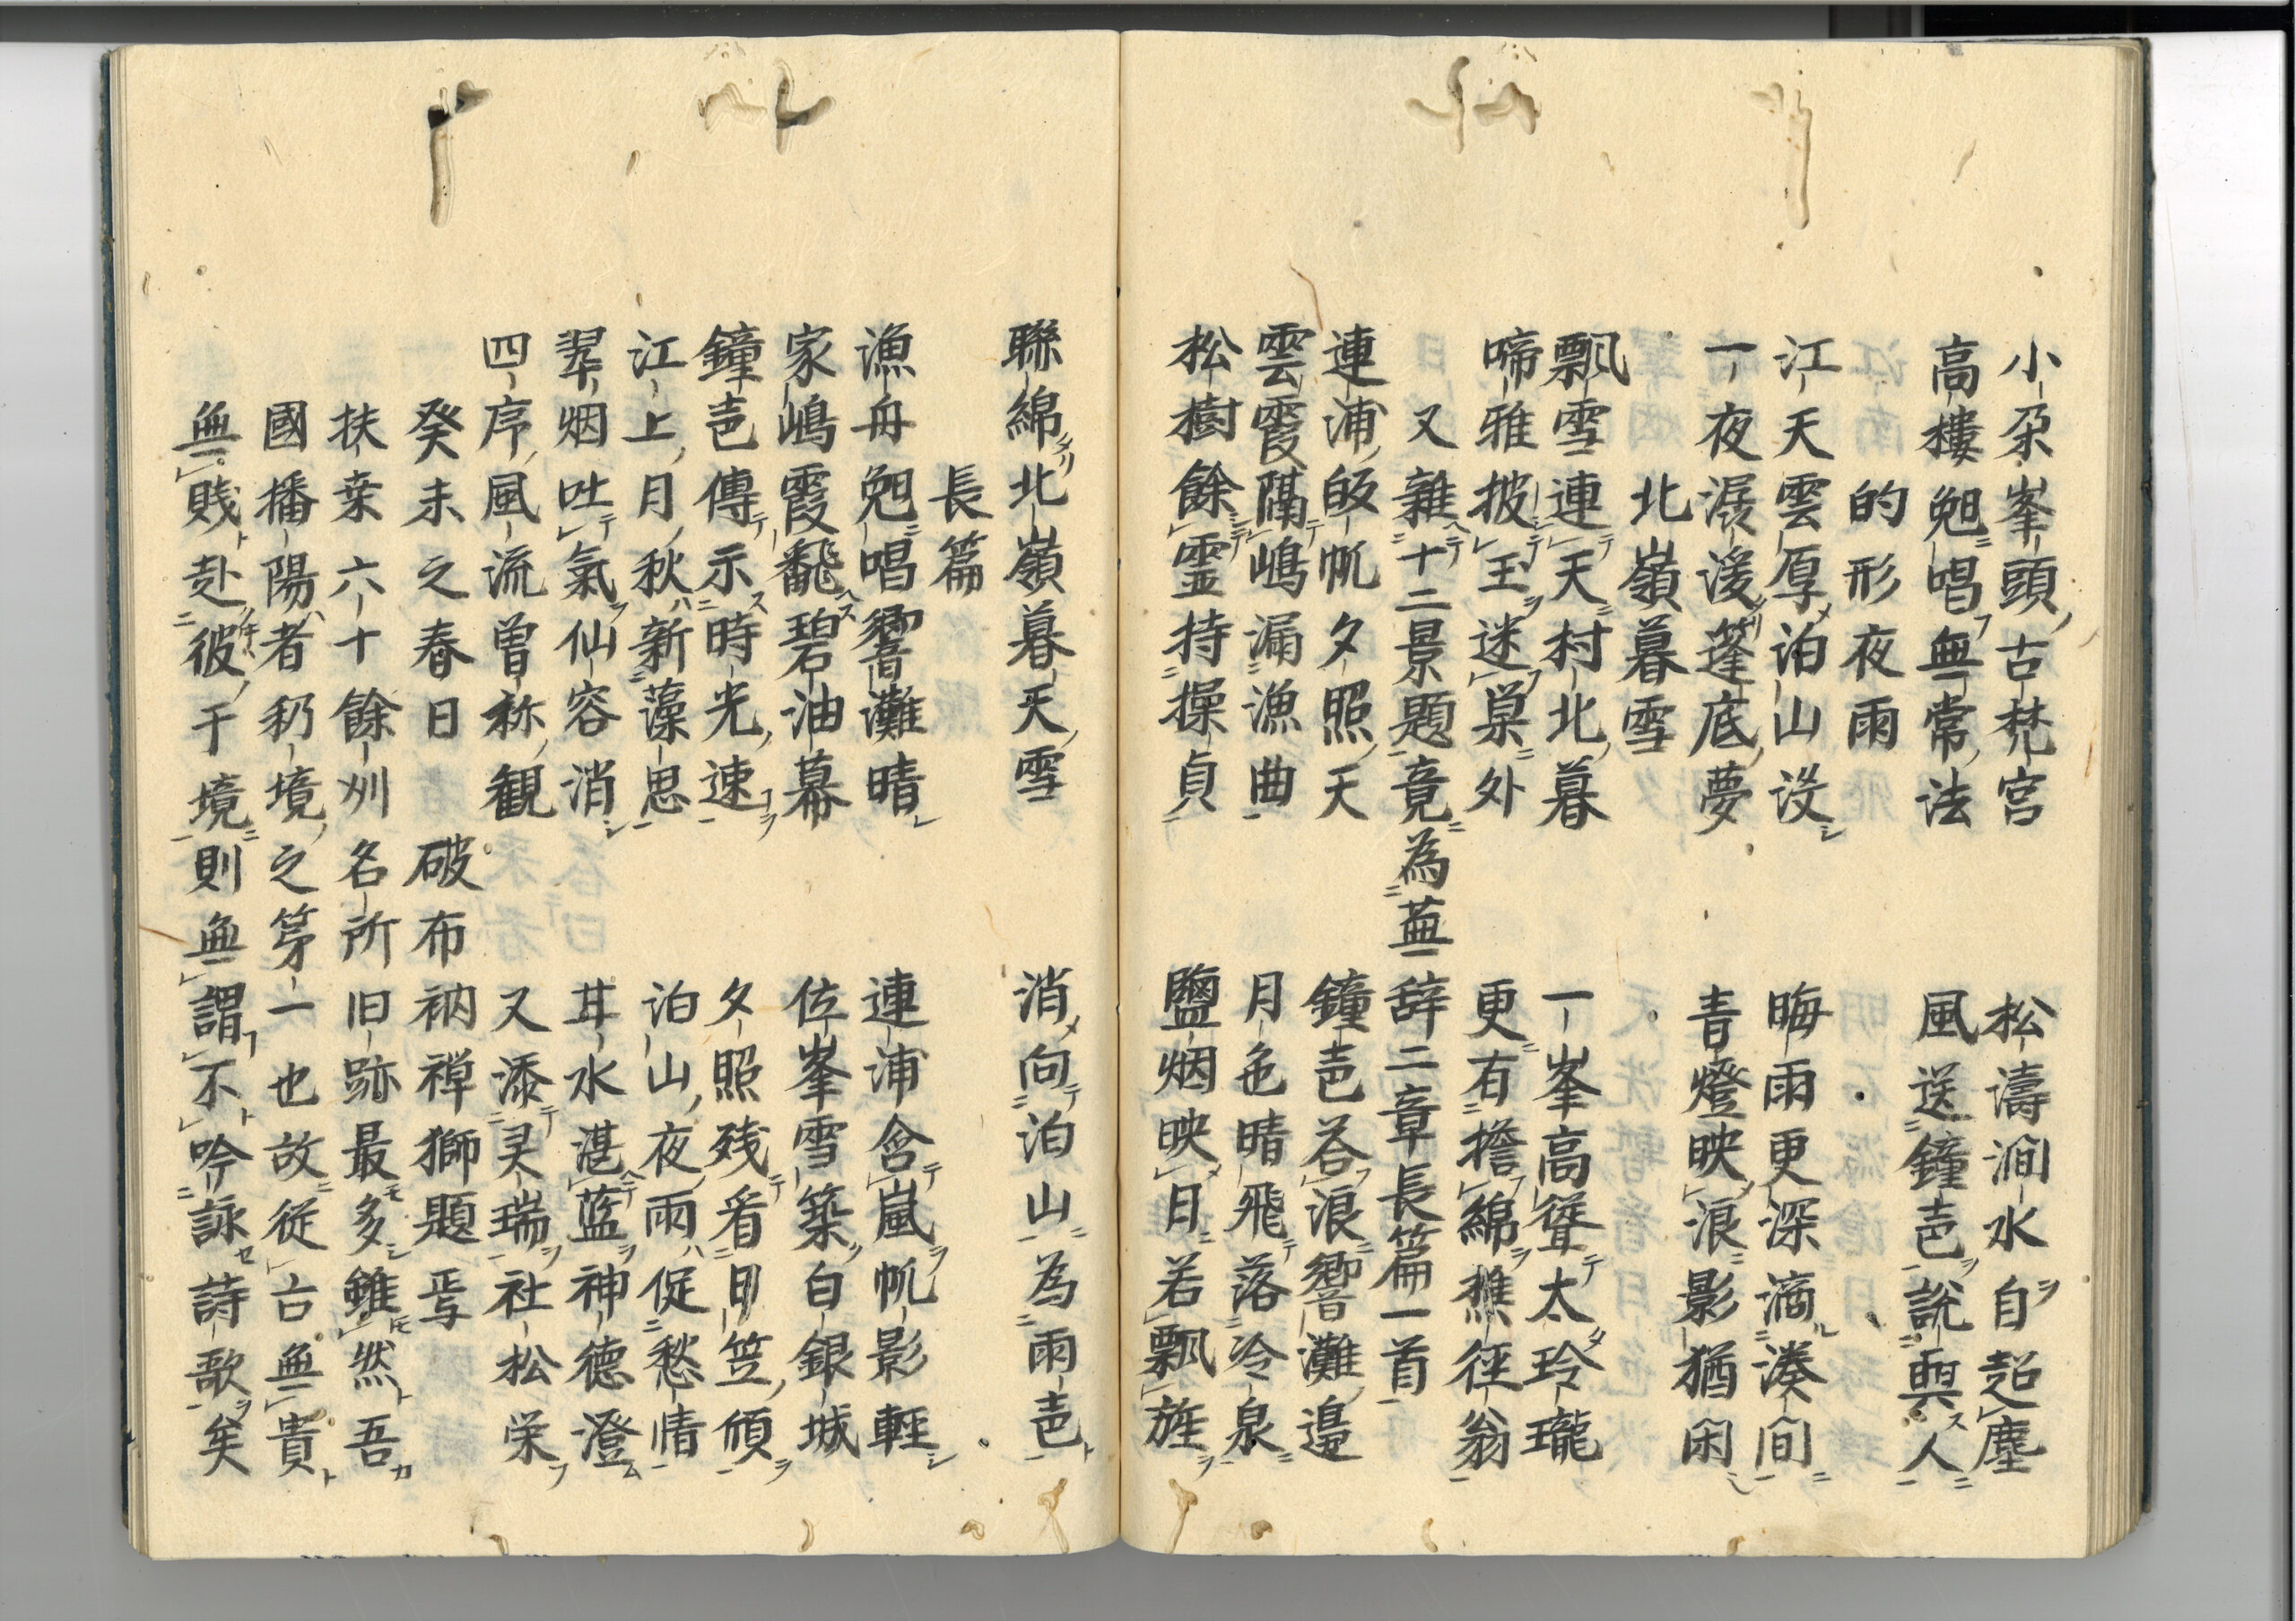 小朶峯頭古梵宮　松濤澗水自超塵
高樓兜唱無常法　風送鐘声説與人
的形夜雨
江天雲厚泊山没　晦雨更深滴湊間
一夜漲湲篷底夢　青燈映浪影猶闲
北嶺暮雪
飄雪連天村北暮　一峯高聳太玲瓏
啼雅披玉迷巣外　更有擔綿樵径翁
又雜十二景題竟為蕪辞二章長篇一首
連浦皈帆夕照天　鐘声答浪響灘邉
雲霞隔嶋漏漁曲　月色晴飛落冷泉
松樹餘霊持操貞　鹽烟映日若飄旌
聯綿北嶺暮天雪　消向泊山為雨声
長篇
漁舟兜唱響灘晴　連浦含嵐帆影軽
家嶋霞飜碧油幕　佐峯雪築白銀城
鐘声傳示時光速　夕照残看日笠傾
江上月秋新藻思　泊山夜雨促愁情
翠烟吐氣仙容消　井水湛藍神徳澄
四序風流曽称観　又添灵瑞社松栄
癸未之春日　破布衲禅獅題焉
扶桒六十餘州名所旧跡最多雖然吾
國播陽者礽境之第一也故従古無貴
無賎赴彼于境則無謂不吟詠詩歌矣